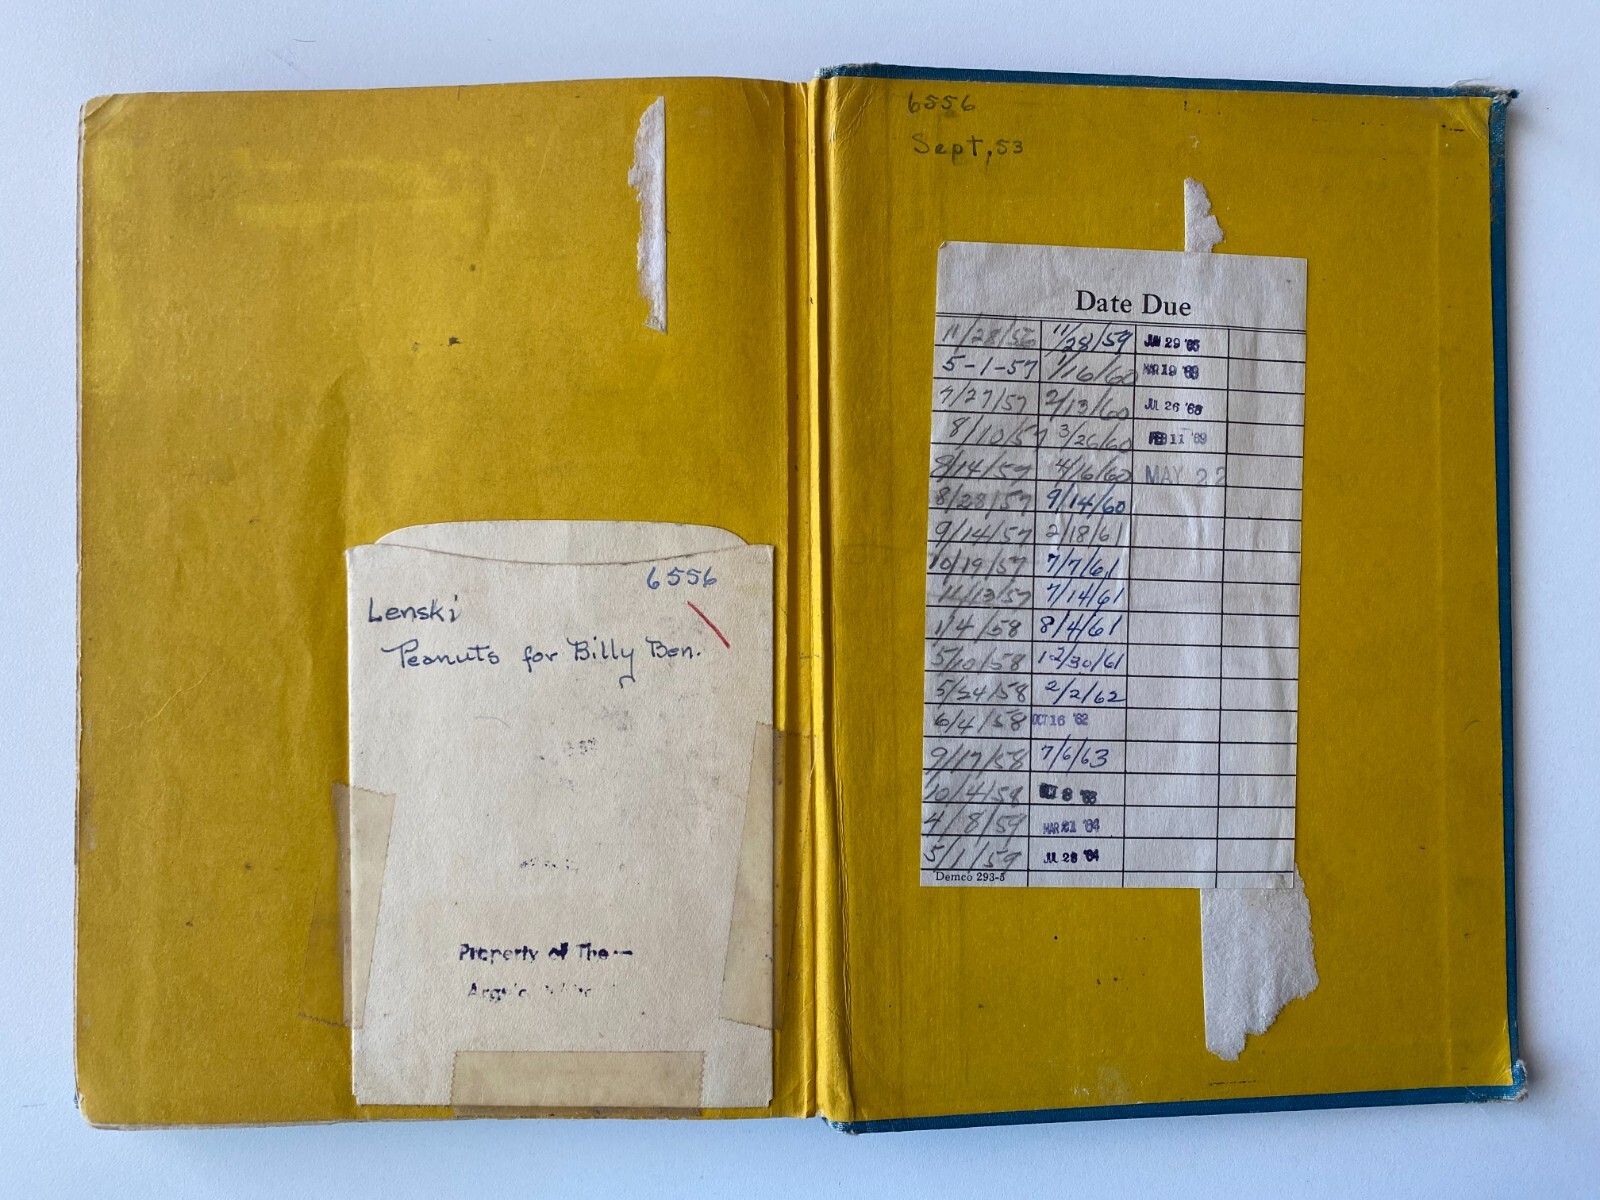 6556
Lenski
Peanuts for Billy Ben.
Property of The
6556
Sept, 53
Date Due
11/28/56 11/28/59 JUN 29 '65
5-1-57 1/16/60 MAR 19 '68
7/27/57 2/13/60 JUL 26 '68
8/10/57 3/26/60 FEB 11 '69
8/14/57 4/16/60 MAY 22
8/28/57 9/14/60
9/14/57 2/18/61
10/19/57 7/7/61
11/13/57 7/14/61
1/4/58 8/4/61
5/10/58 12/30/61
5/24/58 2/2/62
6/4/58 OCT 16 '62
9/17/58 7/6/63
10/4/58 OCT 8 '63
4/8/59 MAR 21 '64
5/1/59 JUL 28 '64
Demco 293-5